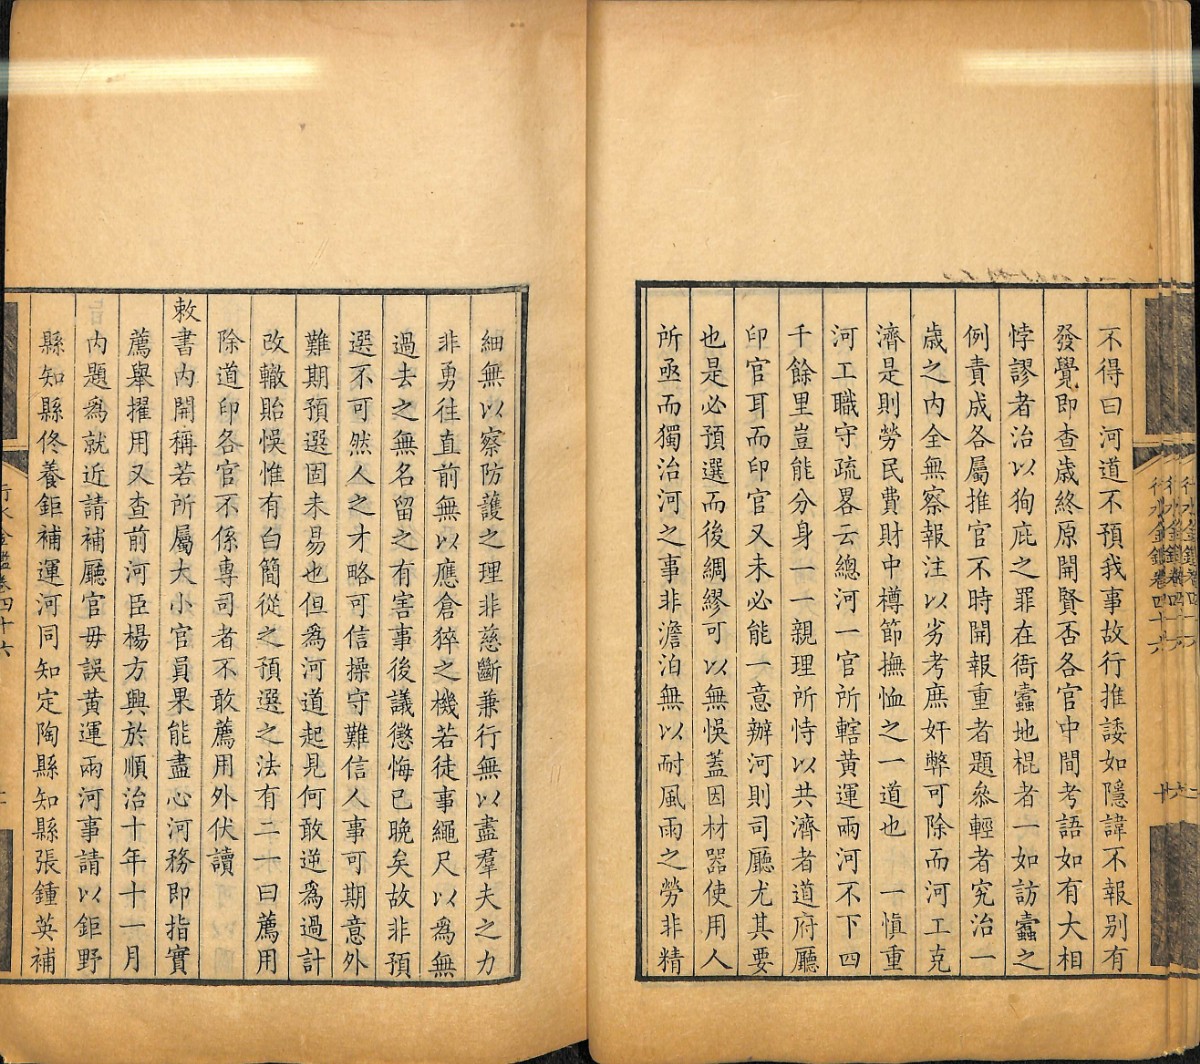 不得曰河道不預我事故行推諉如隱諱不報别有
發覺即查歳終原開賢否各官中間考語如有大相
悖謬者治以狥庇之罪在衙蠹地棍者一如訪蠹之
例責成各屬推官不時開報重者題叅輕者究治一
歳之内全無察報注以劣考庶奸弊可除而河工克
濟是則勞民費財中樽節撫恤之一道也　一愼重
河工職守疏畧云總河一官所轄黄運兩河不下四
千餘里豈能分身一一親理所恃以共濟者道府廳
印官耳而印官又未必能一意辦河則司廳尤其要
也是必預選而後綢繆可以無悞蓋因材器使用人
所亟而獨治河之事非澹泊無以耐風雨之勞非精
細無以察防護之理非慈斷兼行無以盡羣夫之力
非勇往直前無以應倉猝之機若徒事繩尺以爲無
過去之無名留之有害事後議懲悔已晩矣故非預
選不可然人之才略可信操守難信人事可期意外
難期預選固未易也但爲河道起見何敢逆爲過計
改轍貽悞惟有白簡從之預選之法有二一曰薦用
除道印各官不係專司者不敢薦用外伏讀
敕書内開稱若所屬大小官員果能盡心河務即指實
薦舉擢用又查前河臣楊方興於順治十年十一月
内題爲就近請補廳官毋誤黄運兩河事請以鉅野
縣知縣佟養鉅補運河同知定陶縣知縣張鍾英補
行水金鑑卷四十六